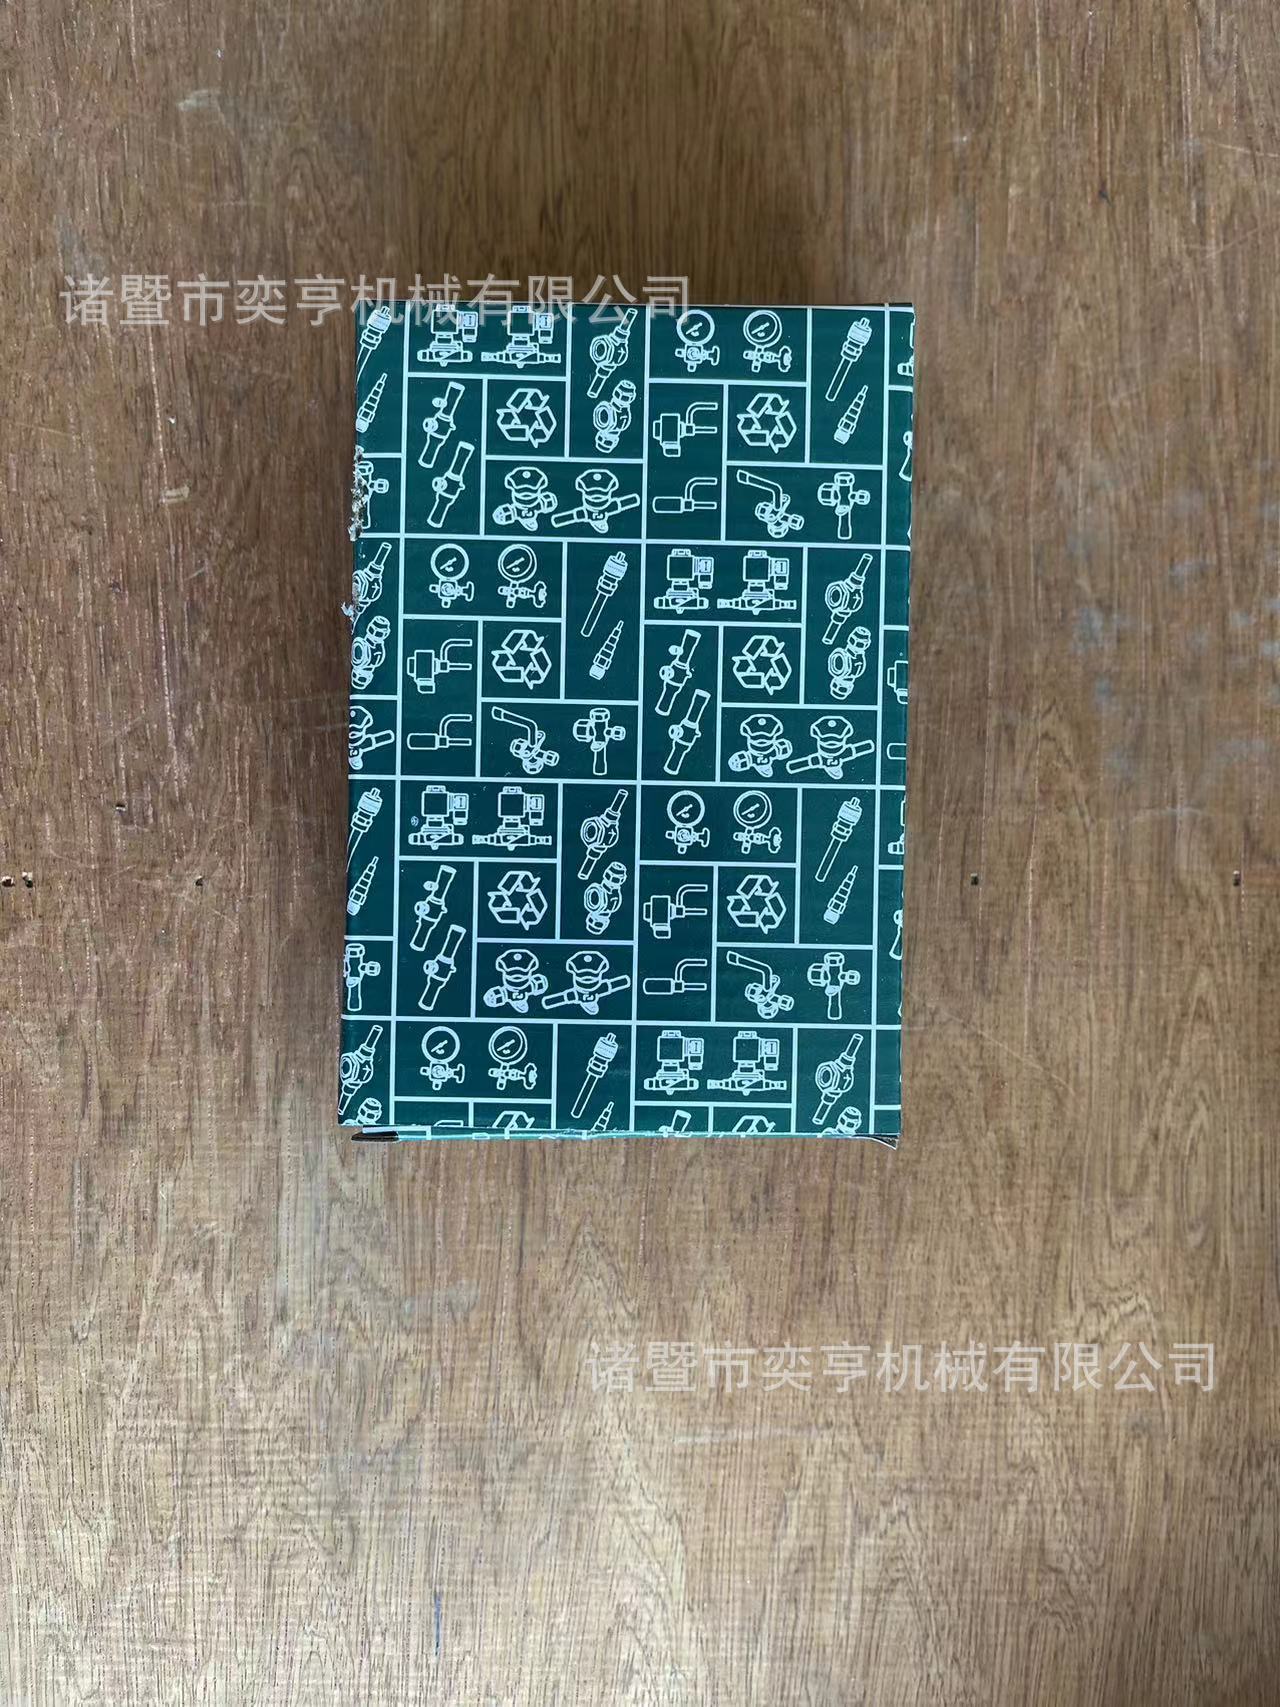 诸暨市奕亨机械有限公司
诸暨市奕亨机械有限公司